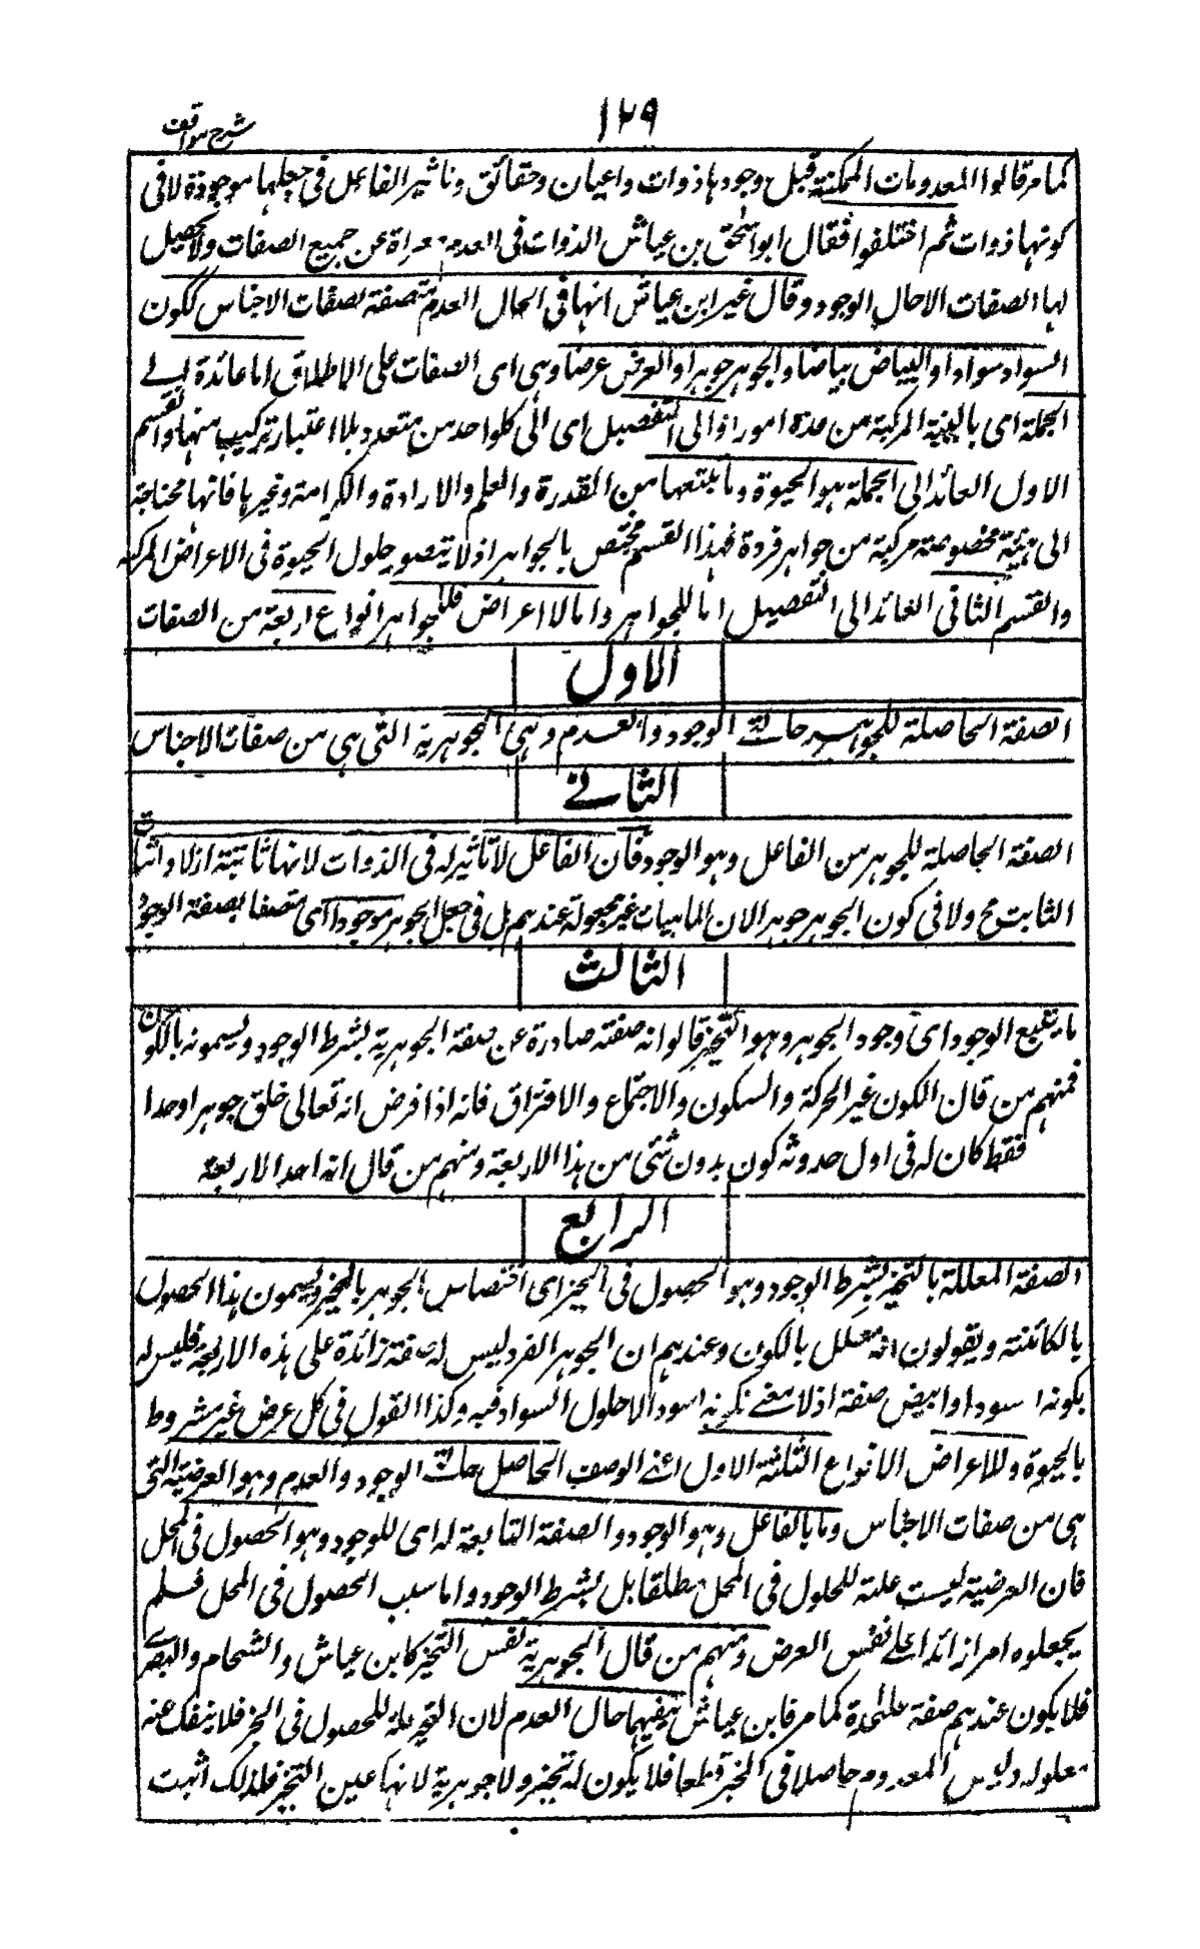 ١٢٩
شرح مواقف
كما مر قالوا المعدومات الممكنة قبل وجودها ذوات واعيان وحقائق وتاثير الفاعل فى جعلها موجودة لا فى
كونها ذوات ثم اختلفوا فقال ابو اسحق بن عياش الذوات فى العدم معراة عن جميع الصفات ولا تحصيل
لها الصفات الا حال الوجود وقال غير ابن عياش انها فى الحال العدم متصفة بصفات الاجناس ككون
السواد سوادا والبياض بياضا والجوهر جوهرا والعرض عرضا وهى اى الصفات على الاطلاق اما عائدة الے
الجملة اى بالبنية المركبة من عدة امور او الى التفصيل اى الى كلواحد من متعدد بلا اعتبار تركيب منها والقسم
الاول العائد الى الجملة هو الحيوة وما يتبعها من القدرة والعلم والارادة والكراهة وغيرها فانها محتاجة
الى بنية مخصوصة مركبة من جواهر فردة فهذا القسم مختص بالجواهر اذ لا يتصور حلول الحيوة فى الاعراض المركبة
والقسم الثانى العائد الى التفصيل اما للجواهر واما لااعراض فللجواهر انواع اربعة من الصفات
الاول
الصفة الحاصلة للجوهر حالتے الوجود والعدم وهى الجوهرية التى هى من صفات الاجناس
الثانے
الصفة الحاصلة للجوهر من الفاعل وهو الوجود فان الفاعل لا تاثير له فى الذوات لانها ثابتة ازلا واثبات
الثابت مح ولا فى كون الجوهر جوهرا لان الماهيات غير مجعولة عندهم بل فى جعل الجوهر موجودا اى متصفا بصفة الوجود
الثالث
ما يتبع الوجود اى وجود الجوهر وهو التحيز قالوا انه صفة صادرة عن صفة الجوهرية بشرط الوجود ويسمونه بالكون
فمنهم من قال الكون غير الحركة والسكون والاجتماع والافتراق فانه اذا فرض انه تعالى خلق جوهرا واحدا
فقط كان له فى اول حدوثه كون بدون شئ من هذا الاربعة ومنهم من قال انه احد الاربعة
الرابع
الصفة المعللة بالتحيز بشرط الوجود وهو الحصول فى الحيز اى اختصاص الجوهر بالحيز ويسمون هذا الحصول
بالكائنة ويقولون انه معلل بالكون وعندهم ان الجوهر الفرد ليس له صفة زائدة على هذه الاربعة فليس له
بكونه اسود او ابيض صفة اذ لا معنے لكونه اسود الا حلول السواد فيه وكذا القول فى كل عرض غير مشروط
بالحيوة وللاعراض الانواع الثلثة الاول اعنے الوصف الحاصل حالتے الوجود والعدم وهو العرضية التى
هى من صفات الاجناس وما بالفاعل وهو الوجود والصفة التابعة له اى للوجود وهو الحصول فى المحل
فان العرضية ليست علة للحلول فى المحل مطلقا بل بشرط الوجود واما سبب الحصول فى المحل فلم
يجعلوه امرا زائدا علے نفس العرض ومنهم من قال الجوهرية نفس التحيز كابن عياش والشحام والبصرے
فلا يكون عندهم صفة علحدة كما مر فابن عياش ينفيهما حال العدم لان التحيز علة للحصول فى الحيز فلا ينفك عنه
معلوله وليس المعدوم حاصلا فى الحيز قطعا فلا يكون له تحيز ولا جوهرية لانها عين التحيز فلذلك اثبت